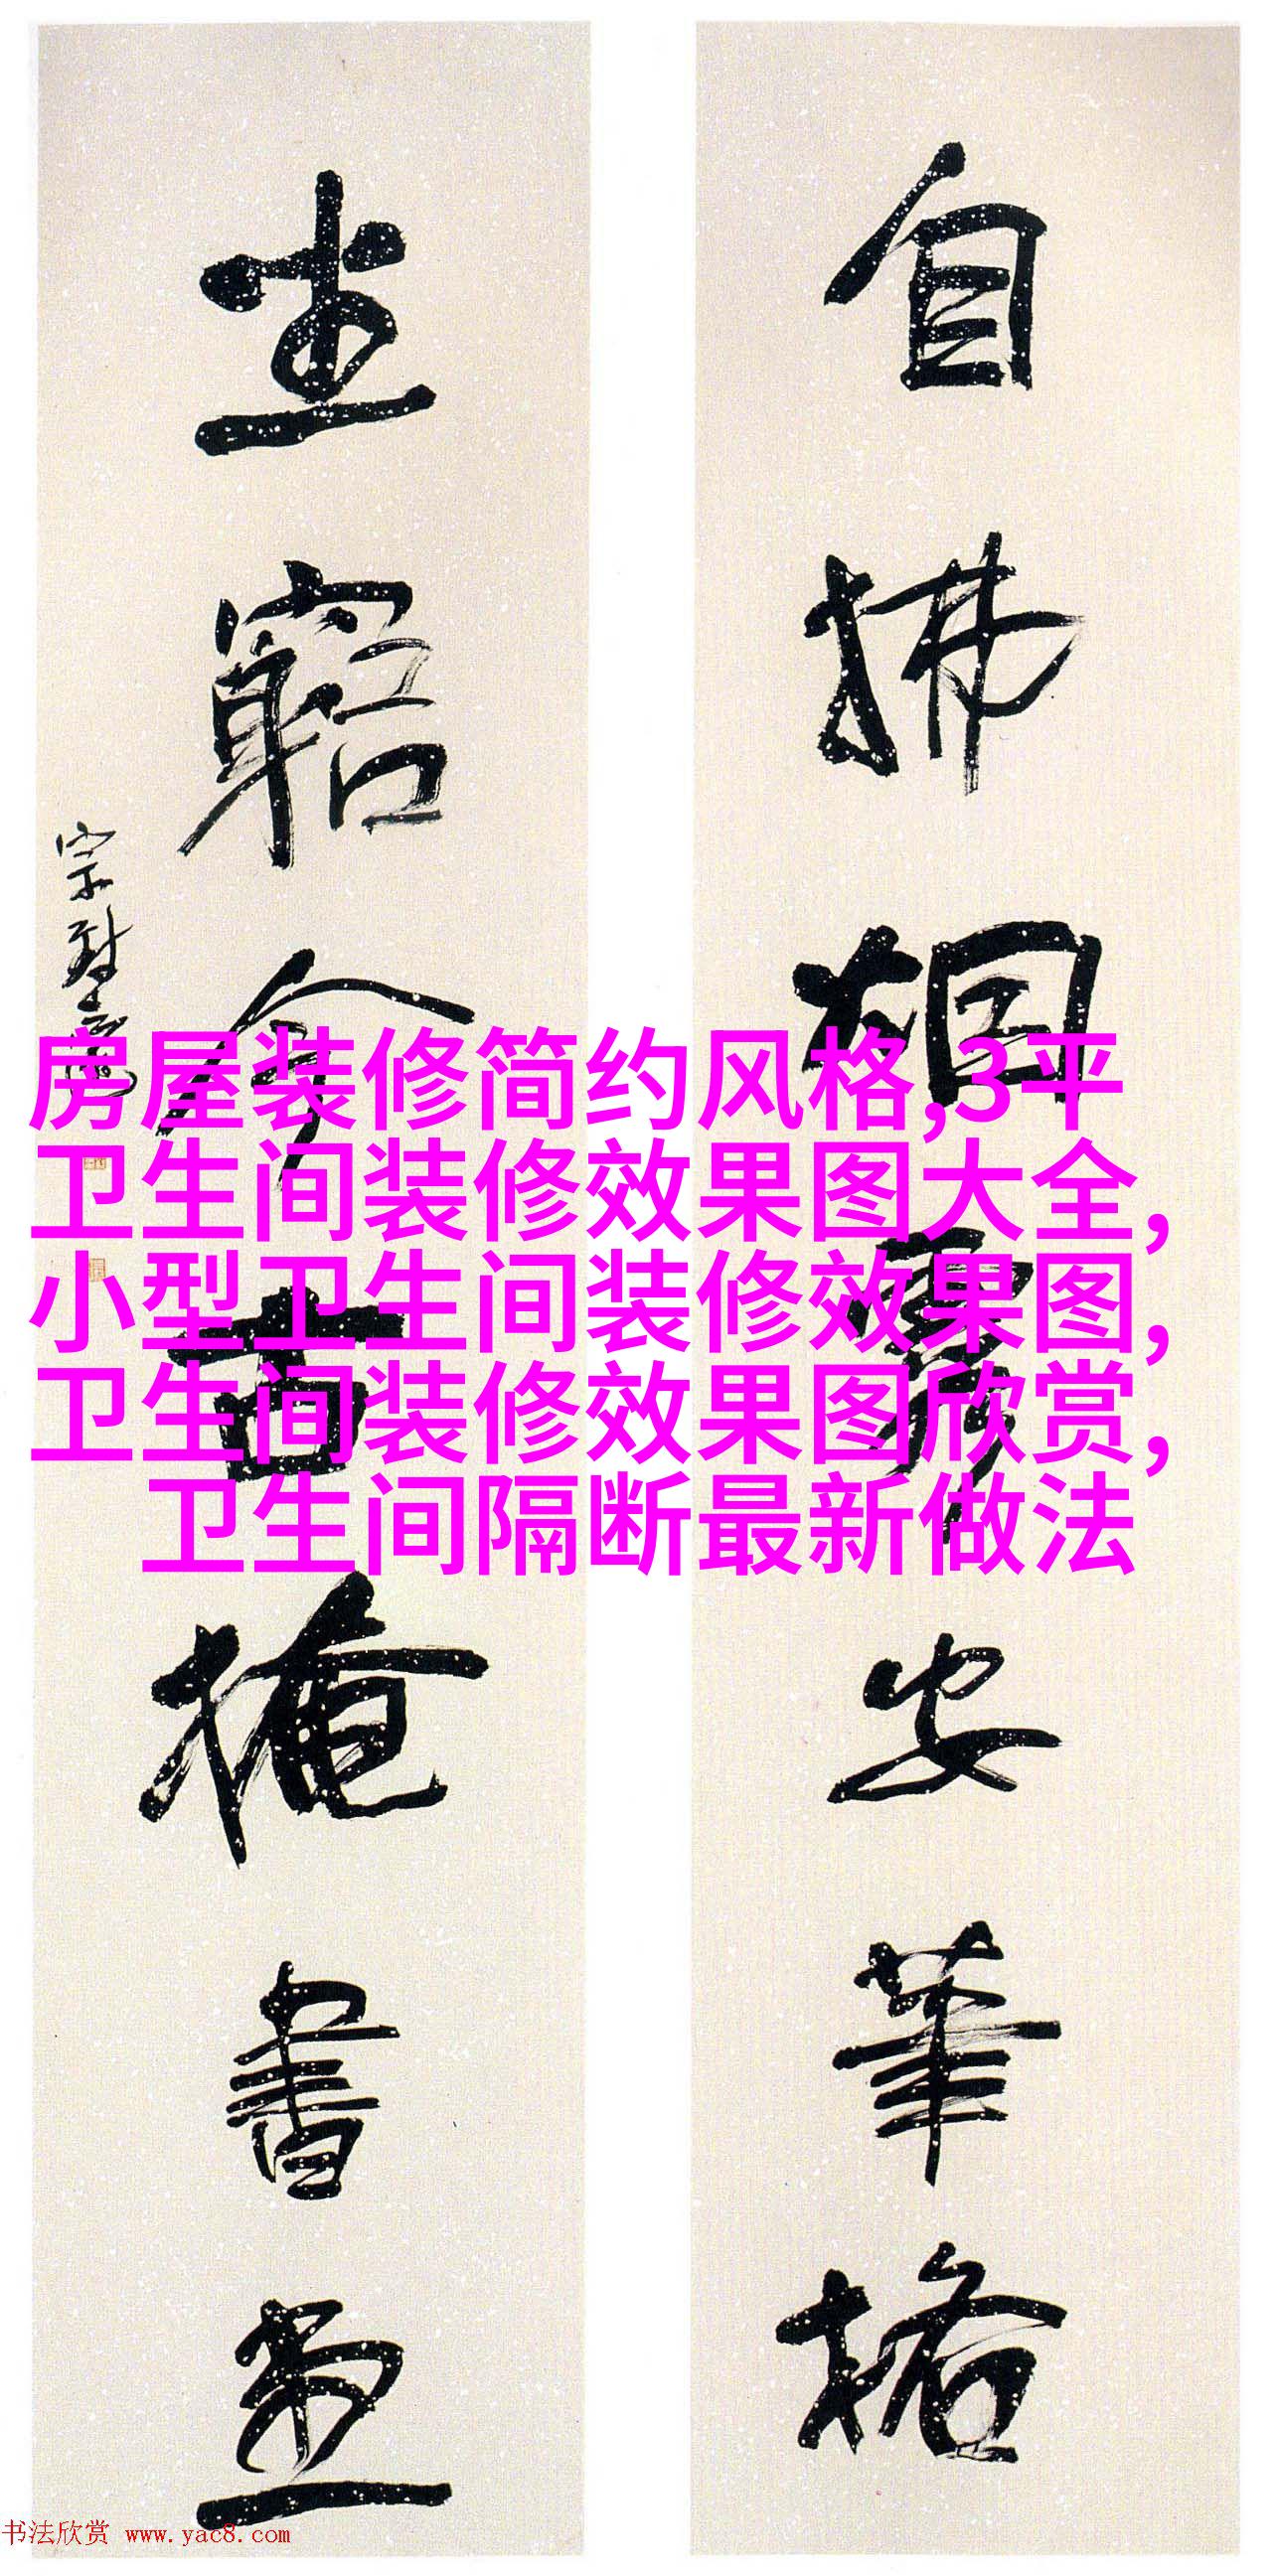 自拂烟霞安筆格
坐窮今古掩書堂
房屋装修简约风格,3平
卫生间装修效果图大全,
小型卫生间装修效果图,
卫生间装修效果图欣赏,
卫生间隔断最新做法
书法欣赏 www.yac8.com